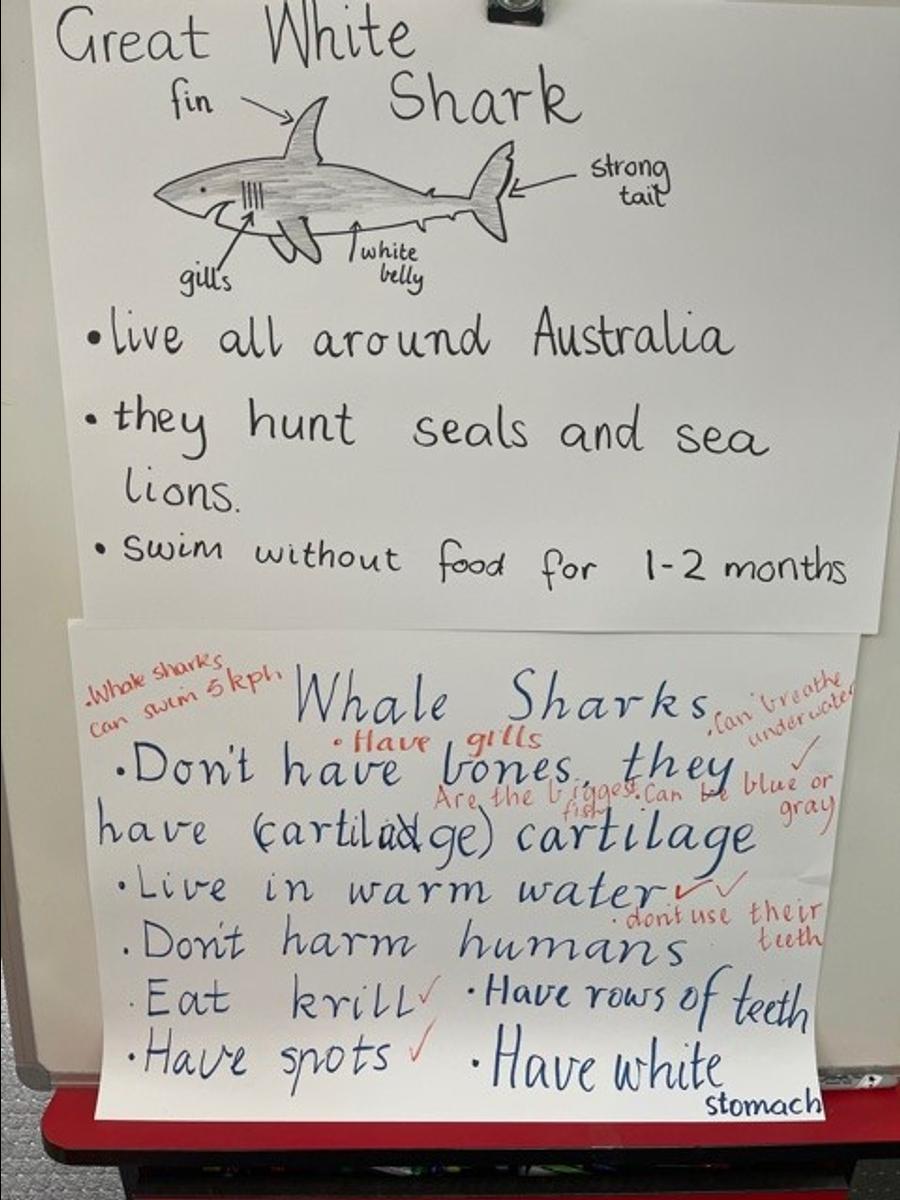 Great White
Shark
fin
strong
tail
gills
white
belly
•live all around Australia
•they hunt seals and sea
lions.
•swim without food for 1-2 months
•Whale sharks
can swim 5 kph.
Whale Sharks
•Can breathe
underwater
•Have gills
•Don't have bones, they
Are the biggest
fish
•Can be blue or
gray
have (cartiladge) cartilage
•Live in warm water
•don't use their
teeth
•Don't harm humans
•Eat krill
•Have rows of teeth
•Have spots
•Have white
stomach